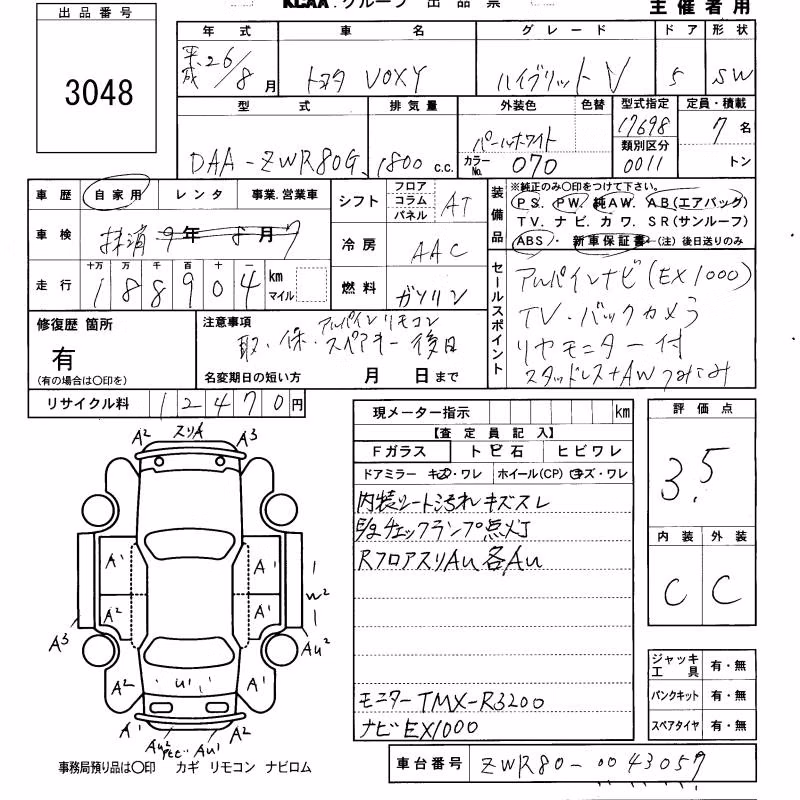 KCAA.グループ 出品票
主催者用
出品番号
3048
年式 車名 グレード ドア 形状
平成 26/8月 トヨタ VOXY ハイブリット V 5 SW
型式 排気量 外装色 色替 型式指定 定員・積載
DAA-ZWR80G 1800 c.c. パールホワイト 17698 7名
カラーNo. 070 類別区分 0011 トン
車歴 自家用 レンタ 事業.営業車
シフト フロア コラム パネル AT
装備品 ※純正のみ〇印をつけて下さい。
PS. PW. 純AW. AB(エアバッグ)
TV. ナビ. カワ. SR(サンルーフ)
ABS. 新車保証書 (注) 後日送りのみ
車検 抹消 9年 8月
冷房 AAC
走行 十万 万 千 百 十 一
188904 km マイル
燃料 ガソリン
セールスポイント
アルパインナビ(EX1000)
TV・バックカメラ
リヤモニター付
スタッドレス+AWつみこみ
修復歴 箇所
有
(有の場合は〇印を)
注意事項
アルパインリモコン
取・保・スペアキー 後日
名変期日の短い方 月 日まで
リサイクル料 12470円
現メーター指示 km
【査定員記入】
Fガラス トビ石 ヒビワレ
ドアミラー キズ・ワレ ホイール(CP) キズ・ワレ
内装シート汚れキズスレ
E/gチェックランプ点灯
RフロアスリAu 各Au
モニターTMX-R3200
ナビEX1000
評価点
3.5
内装 外装
C C
ジャッキ工具 有・無
パンクキット 有・無
スペアタイヤ 有・無
A2 スリA A3
A1 A1
W2
A2 A1
A3 Au2
A2 U1 A2
A1 Au2 Au1 A2
事務局預り品は〇印 カギ リモコン ナビロム
車台番号 ZWR80-0043057